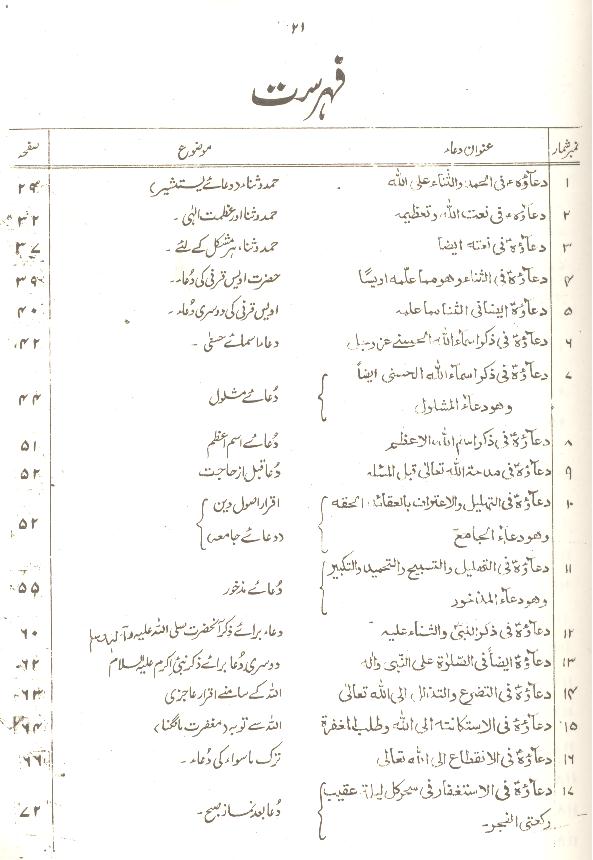 ۲۱
فہرست
نمبر شمار عنوان دعاء موضوع صفحہ
۱ دعاؤہ فی الحمد والثناء علی اللہ حمد و ثناء (دعائے یستشیر) ۲۹
۲ دعاؤہ فی نعت اللہ وتعظیمہ حمد و ثنا اور عظمت الٰہی۔ ۳۲
۳ دعاؤہ فی نعتہ ایضاً حمد و ثنا، ہر مشکل کے لئے۔ ۳۷
۴ دعاؤہ فی الثناء وھو مما علّمہ اویسًا حضرت اویس قرنی کی دعاء۔ ۳۹
۵ دعاؤہ ایضا فی الثنا مما علمہ اویس قرنی کی دوسری دعاء۔ ۴۰
۶ دعاؤہ فی ذکر اسماء اللہ الحسنے عز و جل دعاء اسمائے حسنٰی۔ ۴۲
۷ دعاؤہ فی ذکر اسماء اللہ الحسنی ایضاً
وھو دعاء المشلول دُعائے مشلول ۴۴
۸ دعاؤہ فی ذکر اسم اللہ الاعظیم دُعائے اسم اعظم ۵۱
۹ دعاؤہ فی مدحۃ اللہ تعالیٰ قبل المسئلہ دُعا قبل از حاجت ۵۲
۱۰ دعاؤہ فی التہلیل والاعتراف بالعقائد الحقہ اقرار اصول دین
وھو دعاء الجامع (دعائے جامعہ) ۵۲
۱۱ دعاؤہ فی التھلیل والتسبیح والتحمید والتکبیر
وھو دعاء المذخور دُعائے مذخور ۵۵
۱۲ دعاؤہ فی ذکر النبیؐ والثناء علیہ دعاء برائے ذکر آنحضرت صلی اللہ علیہ وآلہ وسلم ۶۰
۱۳ دعاؤہ ایضاً فی الصّلوٰۃ علی النّبی واٰلہ دوسری دُعا برائے ذکر نبیٔ اکرم علیہ السلام ۶۲
۱۴ دعاؤہ فی التضرع والتذلل الی اللہ تعالیٰ اللہ کے سامنے اقرار عاجزی ۶۳
۱۵ دعاؤہ فی الاستکانتہ الی اللہ وطلب المغفرۃ اللہ سے توبہ (مغفرت مانگنا) ۶۴
۱۶ دعاؤہ فی الانقطاع الی اللہ تعالی ترک ماسواء کی دُعاء۔ ۶۶
۱۷ دعاؤہ فی الاستغفار فی سحر کل لیلۃ عقیب
رکعتی الفجر۔ دُعا بعد نماز صبح۔ ۷۲